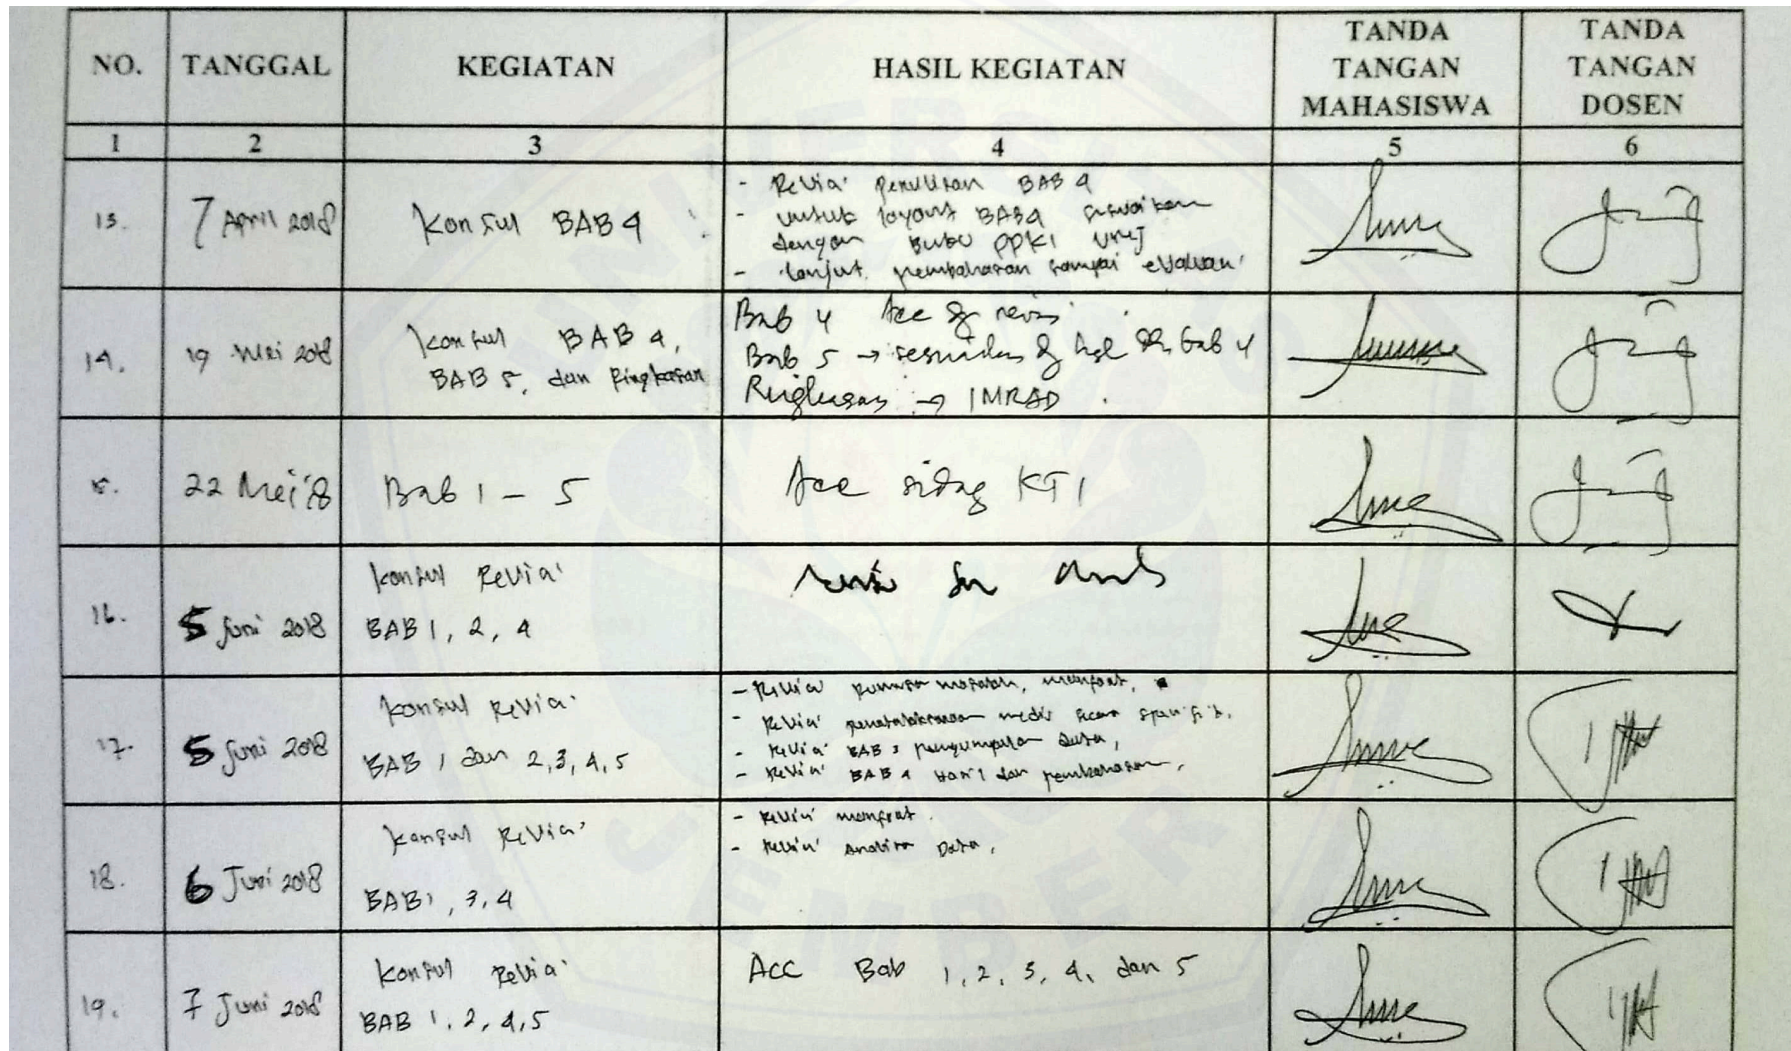 NO. TANGGAL KEGIATAN HASIL KEGIATAN TANDA TANGAN MAHASISWA TANDA TANGAN DOSEN
1 2 3 4 5 6
13. 7 April 2018 Konsul BAB 4
- Revisi penulisan BAB 4
- untuk layout BAB 4 sesuaikan
dengan buku PPKI UNEJ
- lanjut pembahasan sampai evaluasi
14. 19 Mei 2018 Konsul BAB 4,
BAB 5, dan Ringkasan
Bab 4 Acc dg revisi
Bab 5 → sesuaikan dg Bab 4
Ringkasan → IMRAD
15. 22 Mei '18 Bab 1 - 5 Acc sidang KTI
16. 5 Juni 2018 Konsul Revisi
BAB 1, 2, 4
17. 5 Juni 2018 Konsul Revisi
BAB 1 dan 2, 3, 4, 5
- Revisi rumusan masalah, manfaat,
- Revisi penatalaksanaan medis secara spesifik.
- Revisi BAB 3 pengumpulan data,
- Revisi BAB 4 hasil dan pembahasan,
18. 6 Juni 2018 Konsul Revisi
BAB 1, 3, 4
- Revisi manfaat
- Revisi Analisa Data,
19. 7 Juni 2018 Konsul Revisi
BAB 1, 2, 4, 5
Acc Bab 1, 2, 3, 4, dan 5
UNIVERSITAS JEMBER